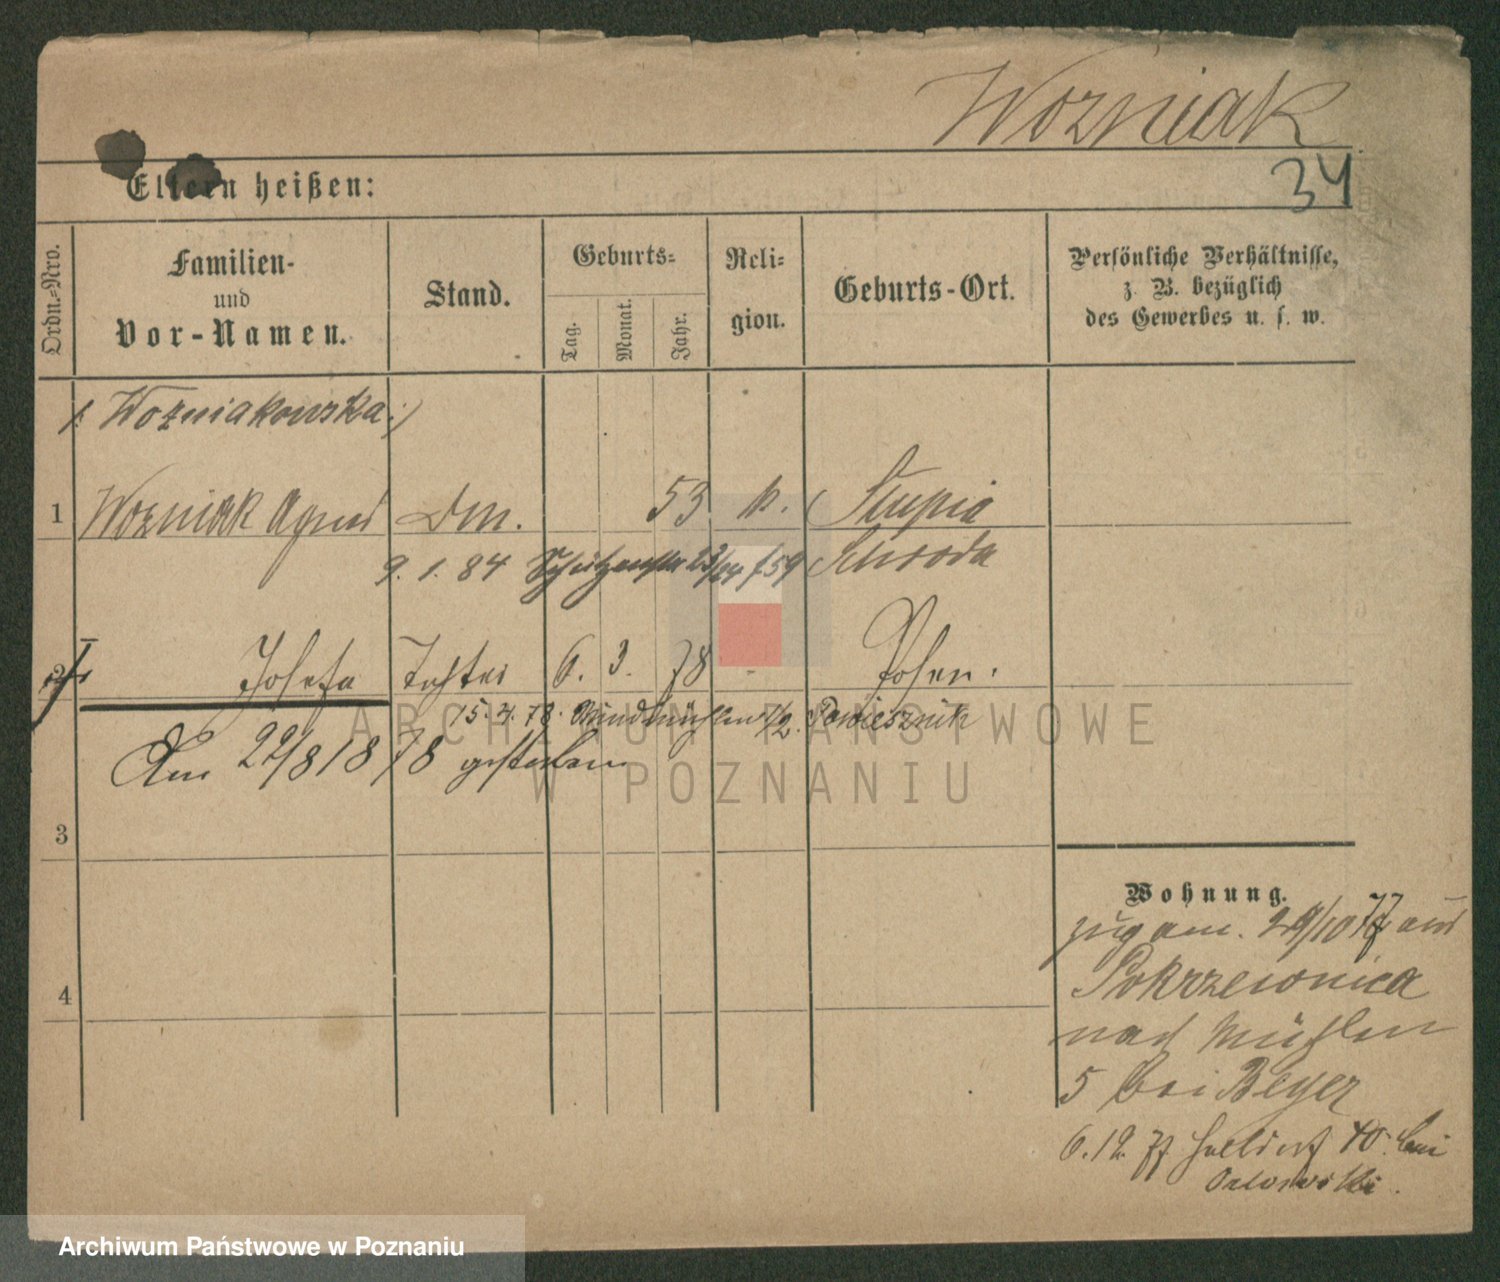 Wozniak
34
Eltern heißen:
Ordn.-Nro.
Familien-
und
Vor-Namen.
Stand.
Geburts-
Tag.
Monat.
Jahr.
Reli-
gion.
Geburts-Ort.
Persönliche Verhältnisse,
z. B. bezüglich
des Gewerbes u. s. w.
/: Wozniakowska :/
1 Wozniak Agnes Dm. 53 k. Slupia
9. 1. 84 Schützenstr 23/24 f 59 Schroda
2 Josefa Tochter 6. 3. 78 - Posen.
15. 4. 78. Windmühlen 1/2.
Am 22/8 1878 gestorben
3
4
Wohnung.
zug am. 29/10 77 aus
Pokrzewnica
nach Mühlen
5 bei Beyer
6. 12. 77 Halbdorf 40 bei
Orlowski.
ARCHIWUM PAŃSTWOWE
W POZNANIU
Archiwum Państwowe w Poznaniu